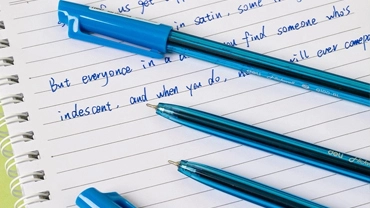 us get
in satin, some
But everyonce in a find someone who's
indescent, and when you do, will ever compare
deli